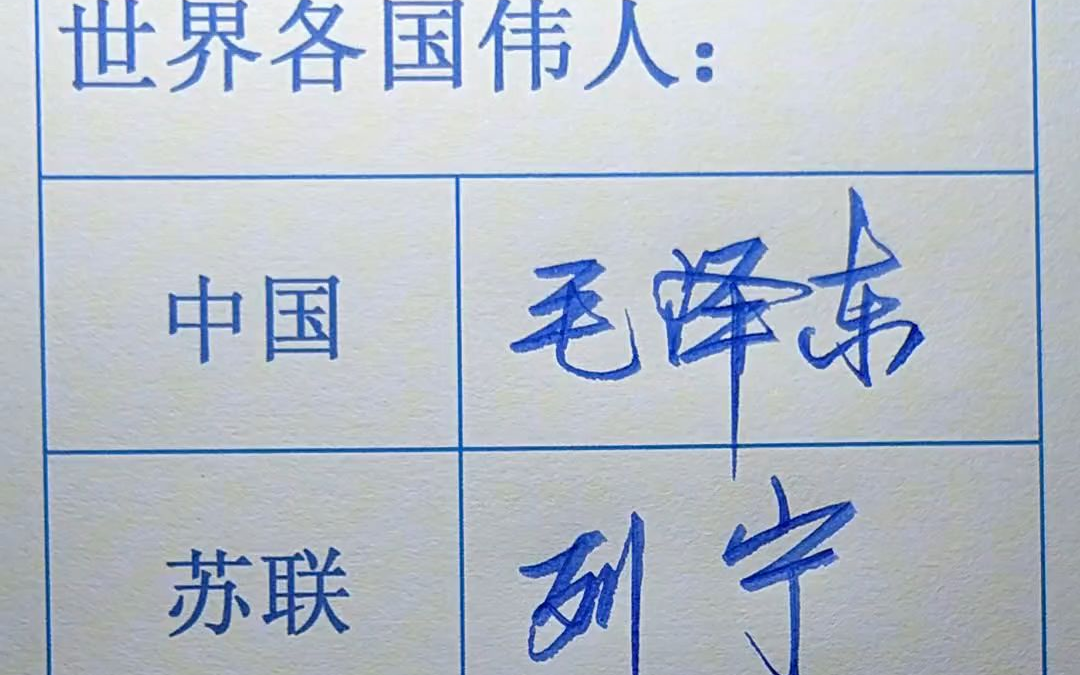 世界各国伟人：
中国 毛泽东
苏联 列宁